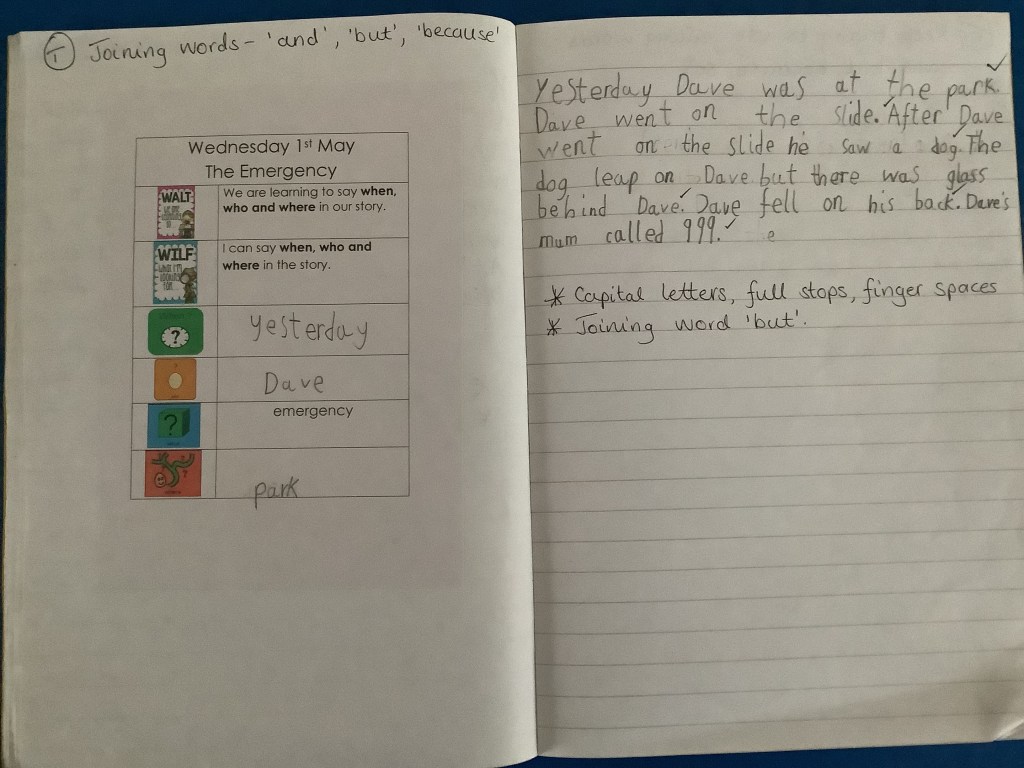 T Joining words - 'and', 'but', 'because'
Wednesday 1st May
The Emergency
WALT
We are learning to say when,
who and where in our story.
WILF
I can say when, who and
where in the story.
?
yesterday
Dave
emergency
?
park
Yesterday Dave was at the park.
Dave went on the slide. After Dave
went on the slide he saw a dog. The
dog leap on Dave but there was glass
behind Dave. Dave fell on his back. Dave's
mum called 999. e
* Capital letters, full stops, finger spaces
* Joining word 'but'.